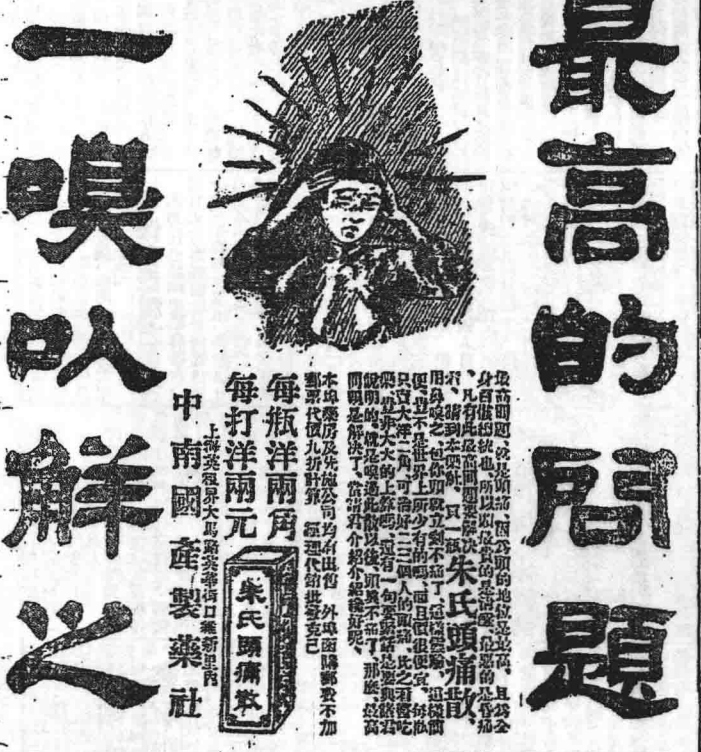 最高的問題
最高問題、就是頭痛、因爲頭的地位是最高、且爲全
身百骸總統也、所以頭最貴的是清醒、最惡的是昏痛
、凡有此最高問題要解決
者、請到本藥社、買一瓶朱氏頭痛散、
用鼻嗅之、包你頭就立刻不痛了、這樣靈驗、這樣簡
便、豈不是世界上所少有的嗎、而且價很便宜、每瓶
只賣大洋二角、可治好二三個人的頭痛、比之看醫吃
藥、豈非大大的上算嗎、還有一句要緊話是要與諸君
說明的、就是嗅過此散以後、頭果不痛了、那麽、最高
問題是解決了、當請君介紹介紹纔好呢、
每瓶洋兩角
每打洋兩元
本埠藥房及先施公司均有出售 外埠函購郵費不加
郵票代價九折計算 經理代銷批發克己
朱氏頭痛散
上海英租界大馬路英華街口維新里內
中南國產製藥社
一嗅以解之